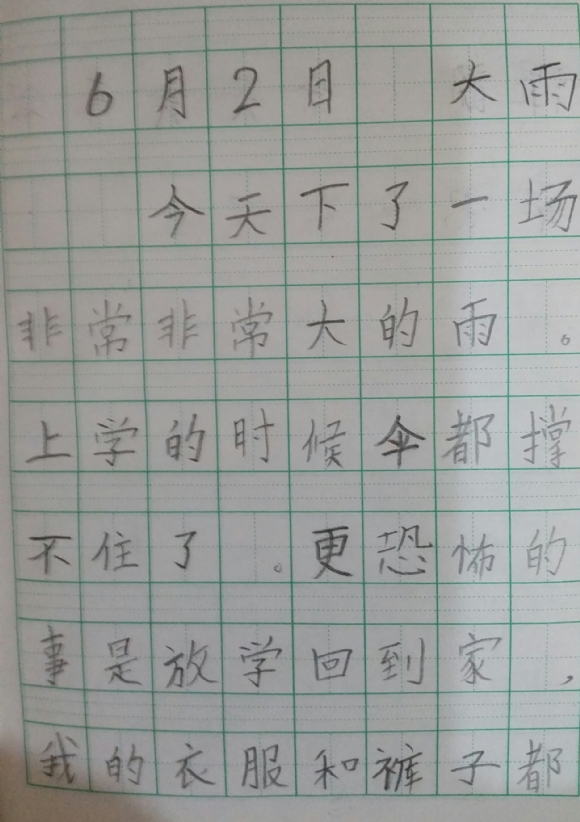 6月2日 大雨
今天下了一场
非常非常大的雨。
上学的时候伞都撑
不住了。更恐怖的
事是放学回到家，
我的衣服和裤子都